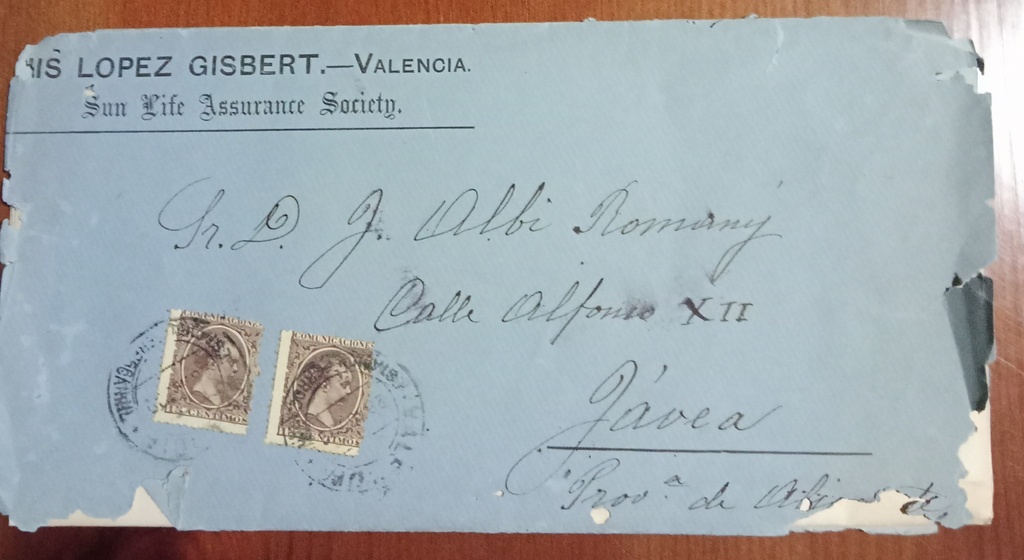 LOPEZ GISBERT.—VALENCIA.
Sun Life Assurance Society.
Sr. D. J. Albi Romany
Calle Alfonso XII
Jávea
Provª de
COMUNICACIONES
CENTIMOS
COMUNICACIONES